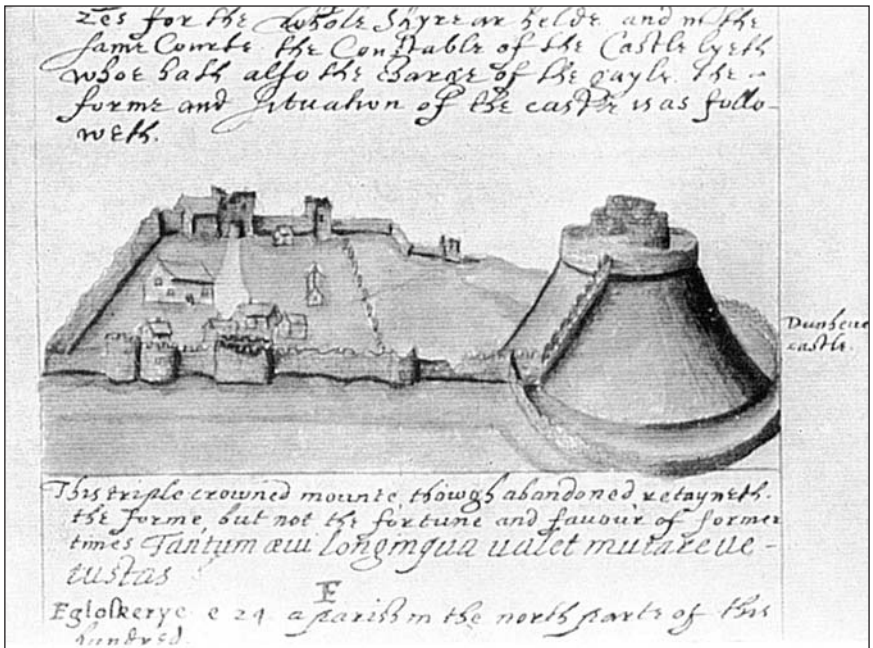 zes for the whole Shyre ar helde. and in the
same Courte the Constable of the Castle lyeth
whoe hath also the Charge of the gayle. The
forme and situation of the castle is as follo-
weth.
Dunheue
castle.
This triple crowned mounte though abandoned retayneth.
the forme, but not the fortune and fauour of former
times Tantum æui longinqua ualet mutare ue-
tustas
F
Egloskerye e 24. a parish in the north parte of this
hundred.